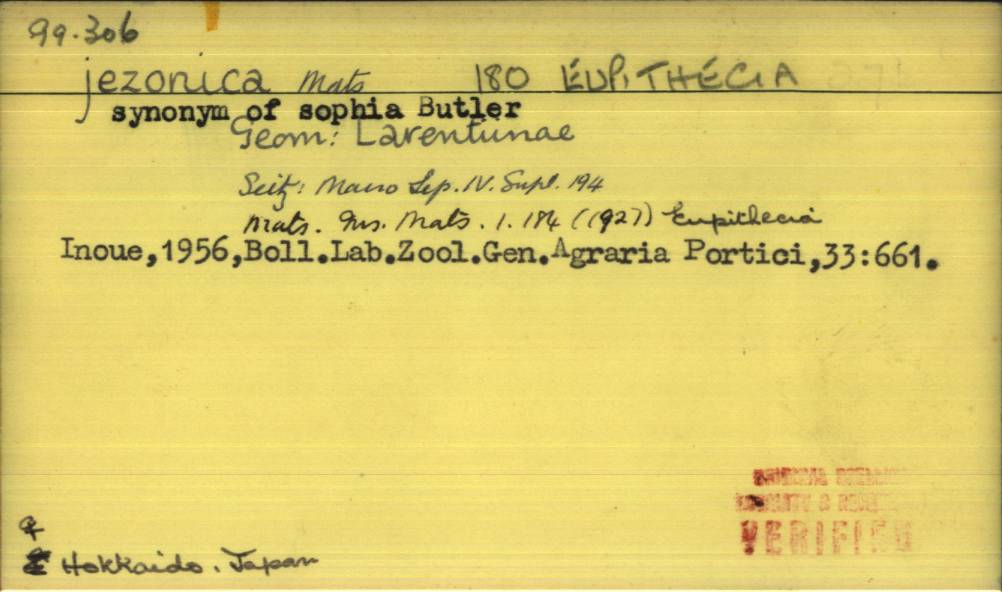 99.306
jezonica Mats 180 EUPITHECIA
synonym of sophia Butler
Geom: Larentiinae
Seitz: Macro Lep. IV. Supl. 194
Mats. Ins. Mats. 1. 184 (1927) Eupithecia
Inoue,1956,Boll.Lab.Zool.Gen.Agraria Portici,33:661.
ORIGINAL
LOCALITY &
VERIFIED
♀
Hokkaido. Japan